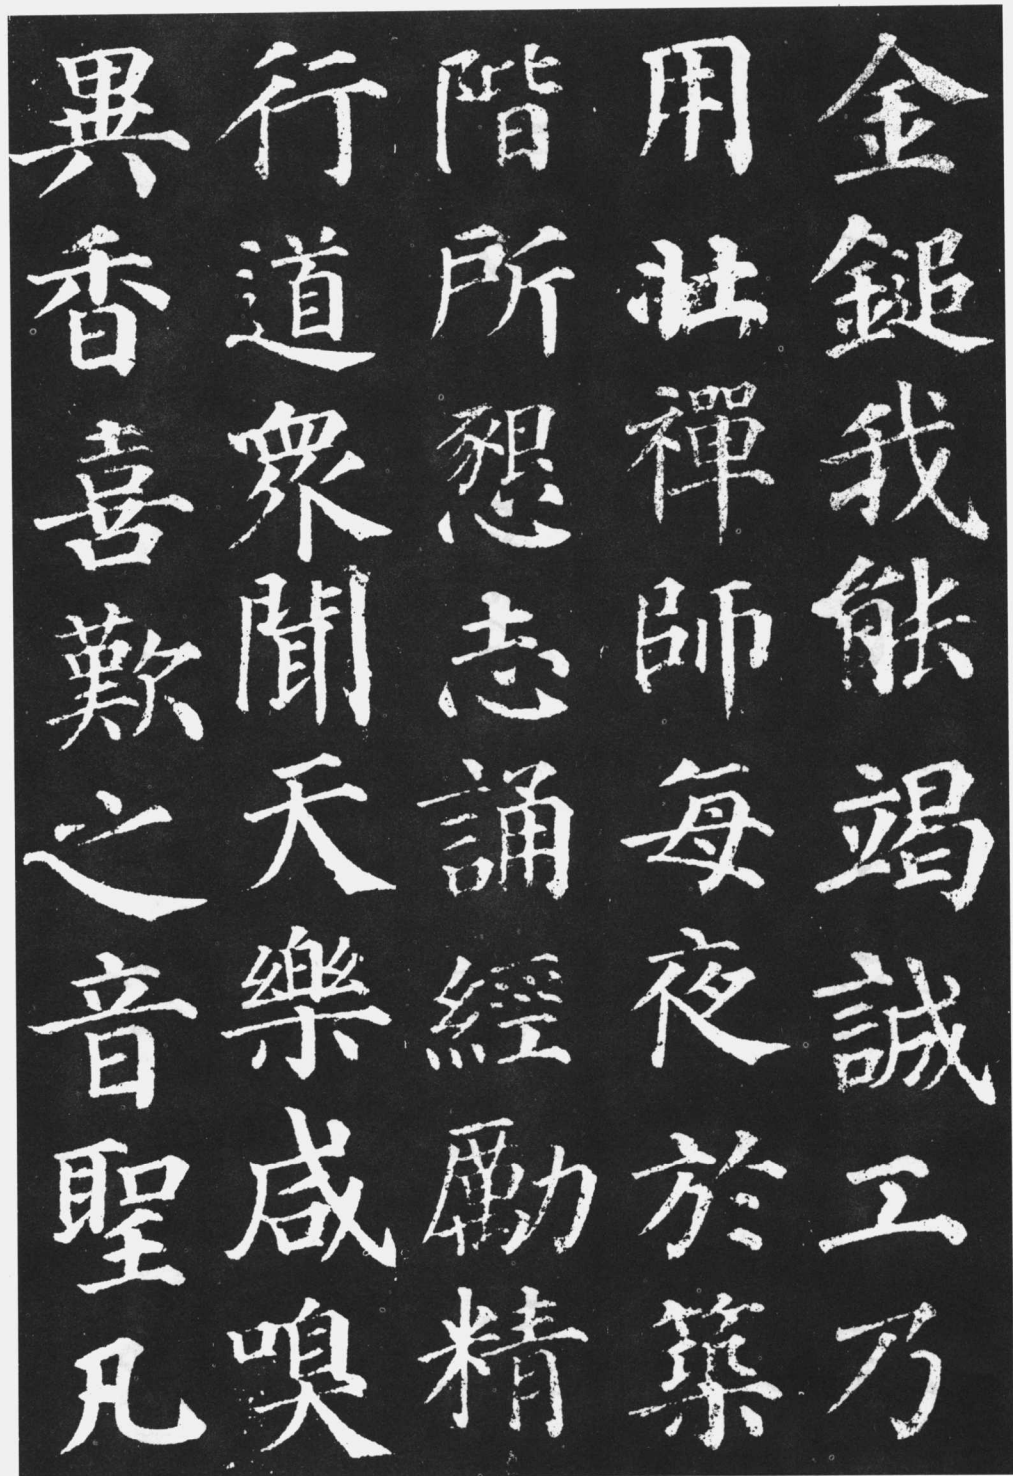 金鎚我能竭誠工乃
用壯禪師每夜於築
階所懇志誦經勵精
行道眾聞天樂咸嗅
異香喜歎之音聖凡